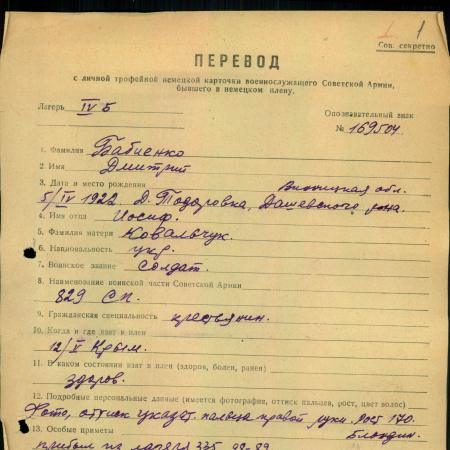 1
Сов. секретно
ПЕРЕВОД
с личной трофейной немецкой карточки военнослужащего Советской Армии,
бывшего в немецком плену.
Лагерь IV Б
Опознавательный знак
№ 169504
1. Фамилия Бабиенко
2. Имя Дмитрий
3. Дата и место рождения Винницкая обл.
5/IV 1922 Д. Тодоровка, Дашевского р-на.
4. Имя отца Иосиф.
5. Фамилия матери Ковальчук.
6. Национальность укр.
7. Воинское звание Солдат.
8. Наименование воинской части Советской Армии
829 СП.
9. Гражданская специальность крестьянин.
10. Когда и где взят в плен
12/V Крым.
11. В каком состоянии взят в плен (здоров, болен, ранен)
здоров.
12. Подробные персональные данные (имеется фотография, оттиск пальцев, рост, цвет волос)
Фото, оттиск указат. пальца правой руки. Рост 170.
13. Особые приметы Блондин.
прибыл из лагеря 335